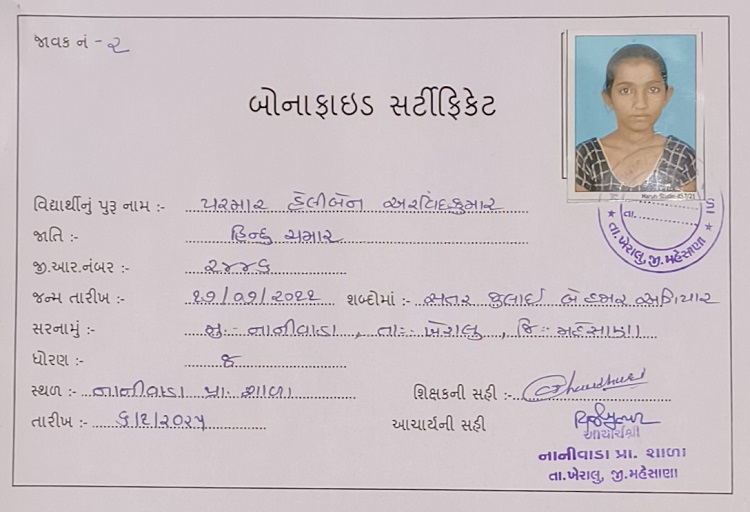 જાવક નં - ૨
બોનાફાઇડ સર્ટીફિકેટ
વિદ્યાર્થીનું પુરૂ નામ :- પરમાર હેલીબેન અરવિંદકુમાર
જાતિ :- હિન્દુ ચમાર
જી.આર.નંબર :- ૨૪૪૬
જન્મ તારીખ :- ૧૭/૦૭/૨૦૧૧ શબ્દોમાં :- સતર જુલાઈ બે હજાર અગિયાર
સરનામું :- મુ:- નાનીવાડા, તા:- ખેરાલુ, જિ:- મહેસાણા
ધોરણ :- ૭
સ્થળ :- નાનીવાડા પ્રા. શાળા શિક્ષકની સહી :-
તારીખ :- ૬/૨/૨૦૨૫ આચાર્યની સહી
આચાર્યશ્રી
નાનીવાડા પ્રા. શાળા
તા.ખેરાલુ, જી.મહેસાણા
તા.
★ તા.ખેરાલુ, જી.મહેસાણા ★